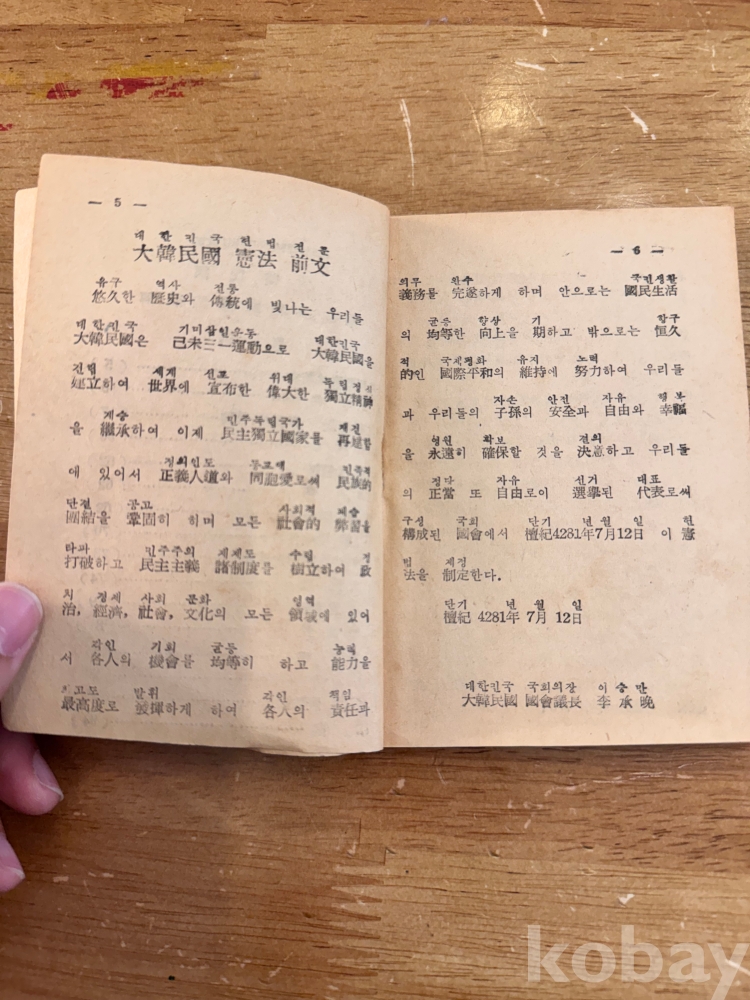 — 5 —
대한민국헌법전문
大韓民國 憲法 前文
유구 역사 전통
悠久한 歷史와 傳統에 빛나는 우리들
대한민국 기미삼일운동 대한민국
大韓民國은 己未三一運動으로 大韓民國을
건립 세계 선포 위대 독립정신
建立하여 世界에 宣布한 偉大한 獨立精神
계승 민주독립국가 재건
을 繼承하여 이제 民主獨立國家를 再建함
정의인도 동포애 민족적
에 있어서 正義人道와 同胞愛로써 民族的
단결 공고 사회적 폐습
團結을 鞏固히 히며 모든 社會的 弊習을
타파 민주주의 제제도 수립 정
打破하고 民主主義 諸制度를 樹立하여 政
치 경제 사회 문화 영역
治, 經濟, 社會, 文化의 모든 領域에 있어
각인 기회 균등 능력
서 各人의 機會를 均等히 하고 能力을
최고도 발휘 각인 책임
最高度로 發揮하게 하여 各人의 責任과
— 6 —
의무 완수 국민생활
義務를 完遂하게 하며 안으로는 國民生活
균등 향상 기 항구
의 均等한 向上을 期하고 밖으로는 恒久
적 국제평화 유지 노력
的인 國際平和의 維持에 努力하여 우리들
자손 안전 자유 행복
과 우리들의 子孫의 安全과 自由와 幸福
영원 확보 결의
을 永遠히 確保할 것을 決意하고 우리들
정당 자유 선거 대표
의 正當 또 自由로이 選擧된 代表로써
구성 국회 단기 년 월 일 헌
構成된 國會에서 檀紀4281年7月12日 이 憲
법 제정
法을 制定한다.
단기 년 월 일
檀紀 4281年 7月 12日
대한민국 국회의장 이승만
大韓民國 國會議長 李承晩
kobay